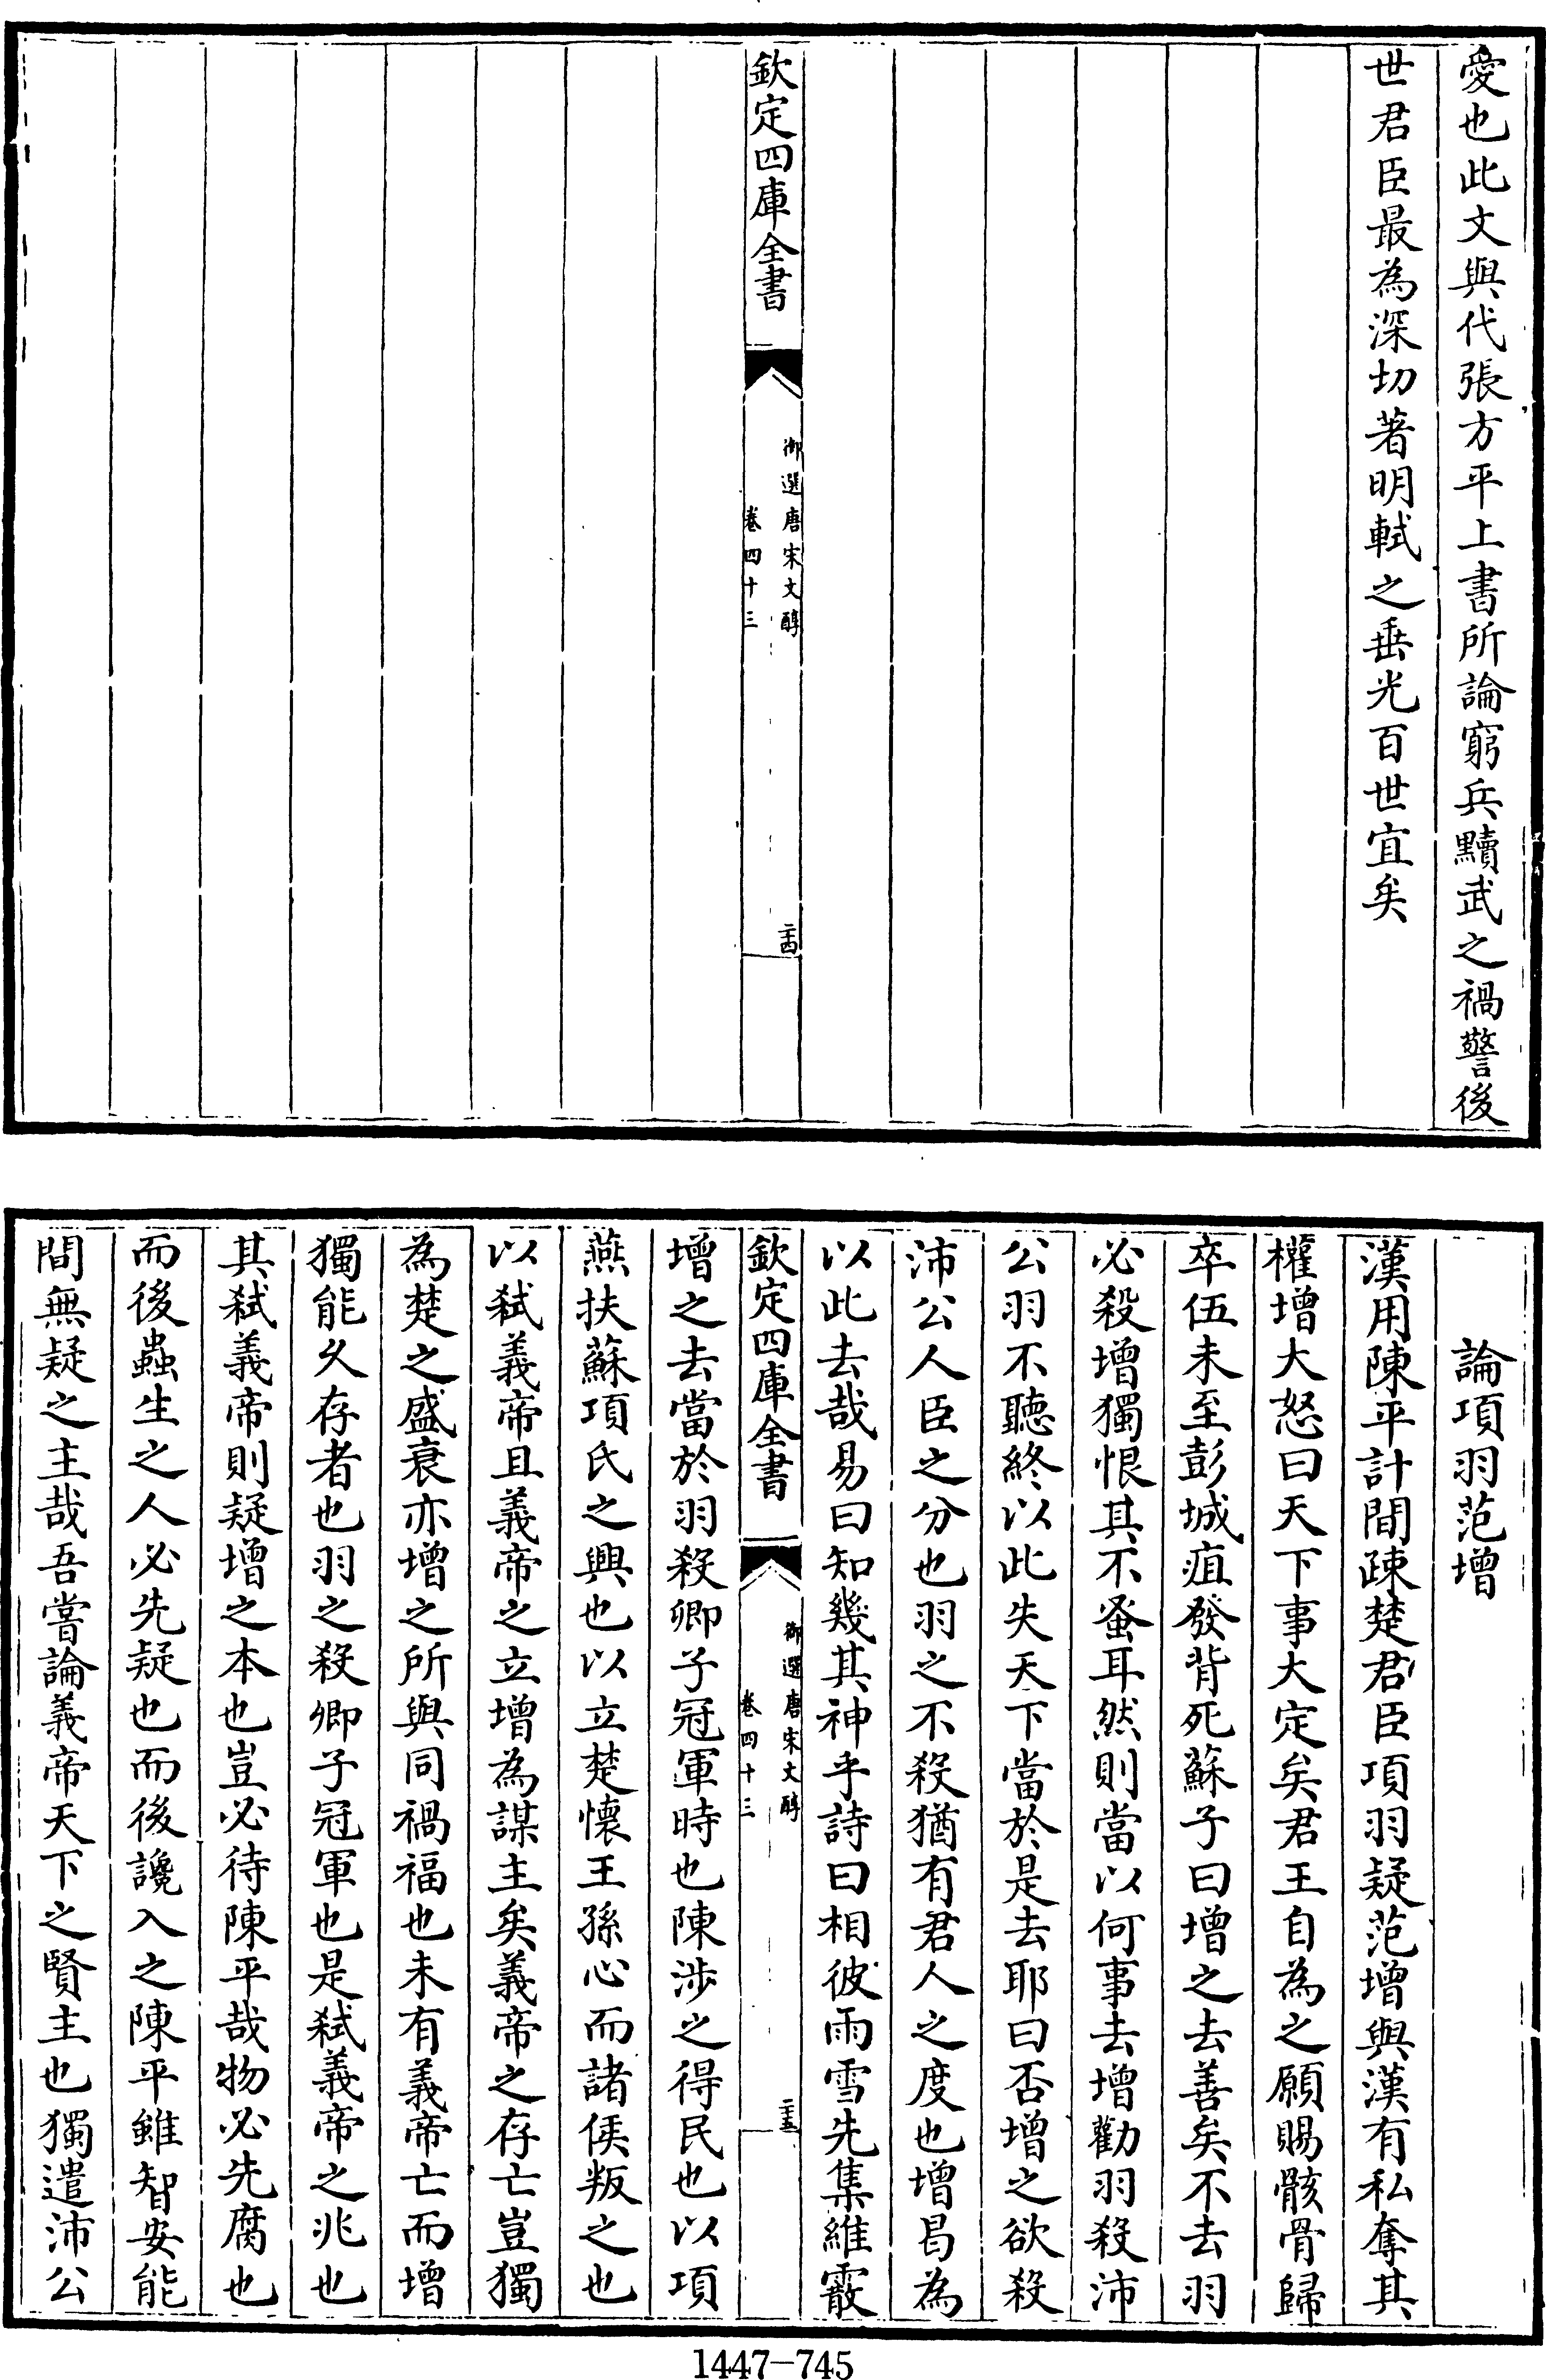 愛也此文與代張方平上書所論窮兵黷武之禍警後
世君臣最為深切著明軾之垂光百世宜矣
欽定四庫全書
御選唐宋文醇
卷四十三
二十四
論項羽范增
漢用陳平計間疎楚君臣項羽疑范增與漢有私奪其
權增大怒曰天下事大定矣君王自為之願賜骸骨歸
卒伍未至彭城疽發背死蘇子曰增之去善矣不去羽
必殺增獨恨其不蚤耳然則當以何事去增勸羽殺沛
公羽不聽終以此失天下當於是去耶曰否增之欲殺
沛公人臣之分也羽之不殺猶有君人之度也增曷為
以此去哉易曰知幾其神乎詩曰相彼雨雪先集維霰
欽定四庫全書
御選唐宋文醇
卷四十三
二十五
增之去當於羽殺卿子冠軍時也陳涉之得民也以項
燕扶蘇項氏之興也以立楚懷王孫心而諸侯叛之也
以弒義帝且義帝之立增為謀主矣義帝之存亡豈獨
為楚之盛衰亦增之所與同禍福也未有義帝亡而增
獨能久存者也羽之殺卿子冠軍也是弒義帝之兆也
其弒義帝則疑增之本也豈必待陳平哉物必先腐也
而後蟲生之人必先疑也而後讒入之陳平雖智安能
間無疑之主哉吾嘗論義帝天下之賢主也獨遣沛公
1447-745